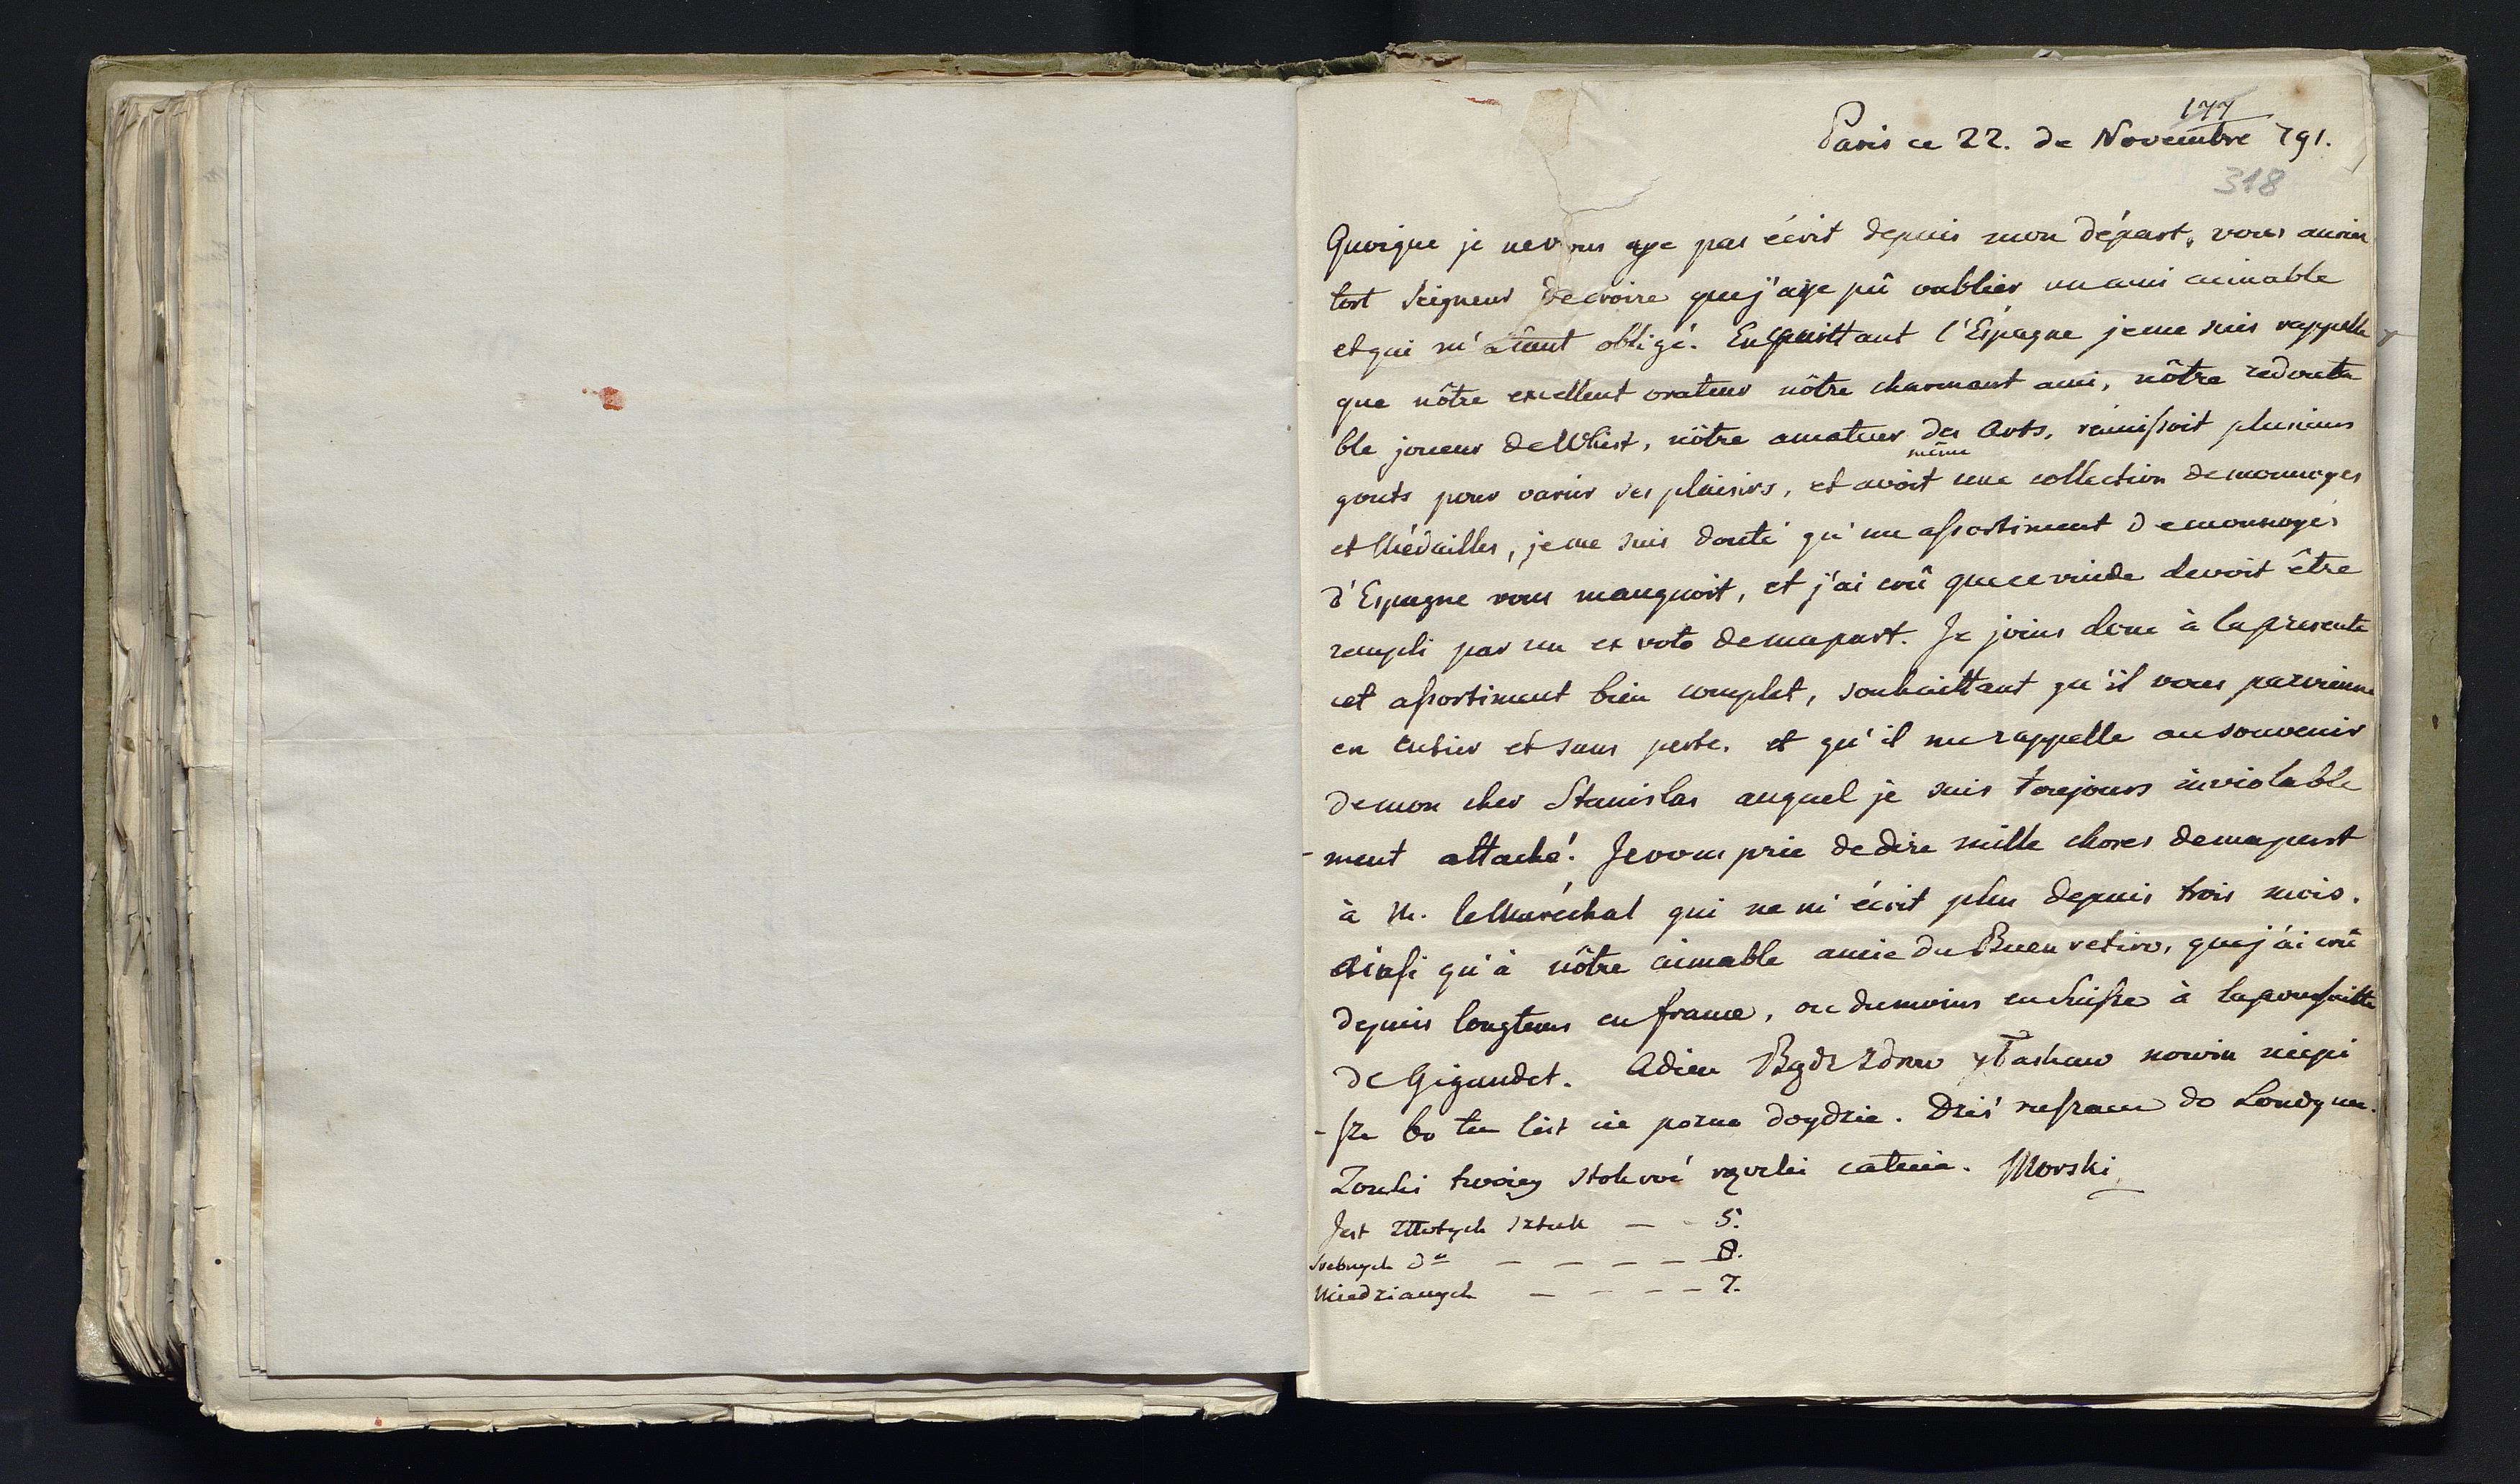 177
Paris ce 22. de Novembre 791.
318
Quoique je ne vous aye pas écrit depuis mon départ, vous auriez
tort Seigneur de croire que j'aye pû oublier un ami aimable
et qui m'a tant obligé. En quittant l'Espagne je me suis rappellé
que nôtre excellent orateur nôtre charmant ami, nôtre redouta
ble joueur de Whist, nôtre amateur des Arts, réunissoit plusieurs
gouts pour varier ses plaisirs, et avoit même une collection de monnoyes
et Médailles, je me suis douté qu'un assortiment de monnoyes
d'Espagne vous manquoit, et j'ai crû que ce vuide devoit être
rempli par un ex voto de ma part. Je joins donc à la presente
cet assortiment bien complet, souhaittant qu'il vous parvienne
en entier et sans perte, et qu'il me rappelle au souvenir
de mon cher Stanislas auquel je suis toujours inviolable
- ment attaché. Je vous prie de dire mille choses de ma part
à M. le Maréchal qui ne m'écrit plus depuis trois mois.
ainsi qu'à nôtre aimable amie du Buen retiro, que j'ai crû
depuis longtems en france, ou du moins en Suisse à la poursuitte
de Gigandet. Adieu Bądz zdrow y łaskaw nowin niepi
- szę bo ten list nie pozno doydzie. Dziś ruszam do Londynu.
Zonki twoiey rączki całuię. Morski
Jest złłotych sztuk — - 5.
Srebnych do — — — — 8.
Miedzianych — — — — 7.